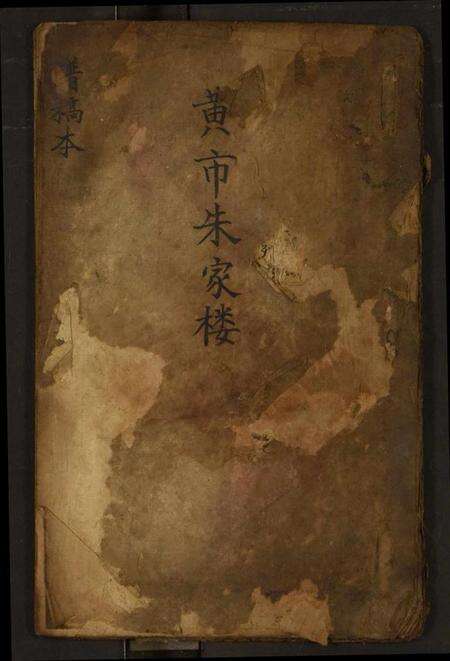 黄市朱家楼
普稿本